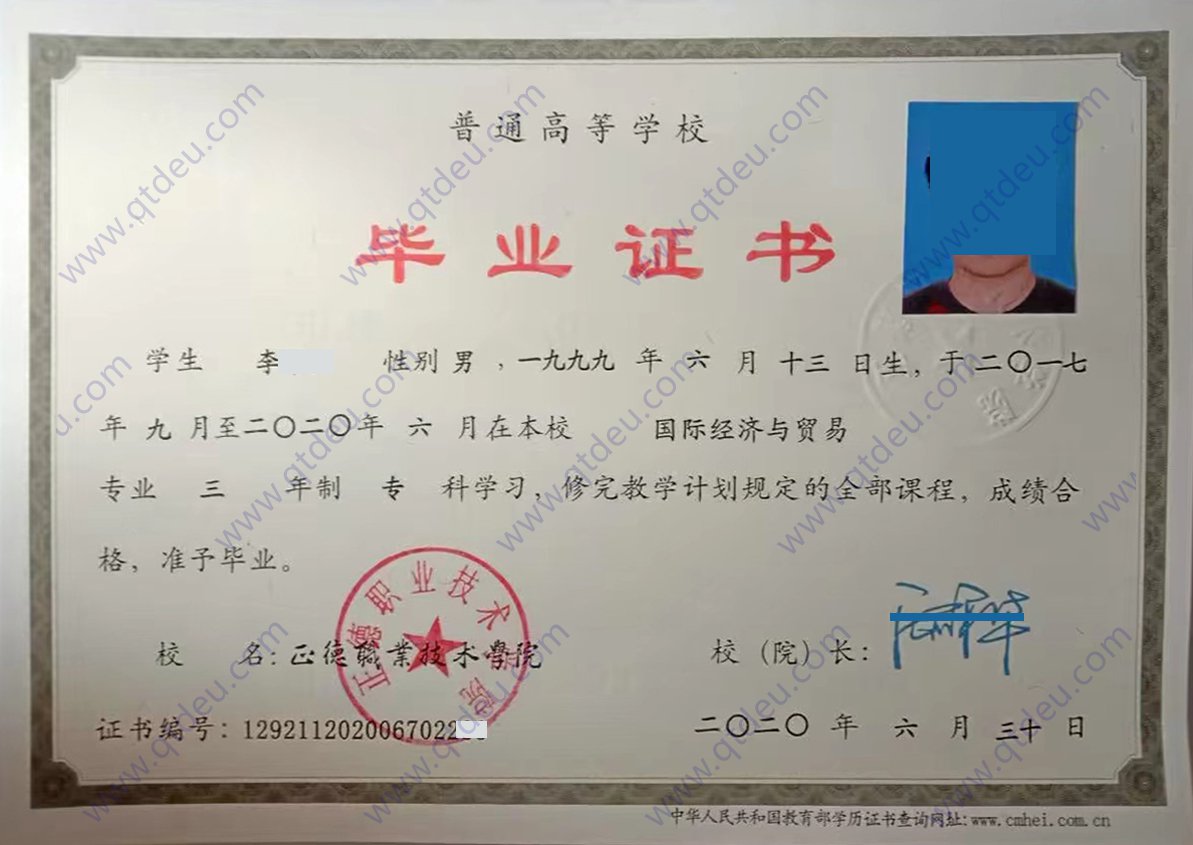 普通高等学校
毕业证书
学生 李 性别 男 ,一九九九 年 六 月 十三 日生, 于二〇一七
年 九 月至二〇二〇年 六 月在本校 国际经济与贸易
专业 三 年制 专 科学习, 修完教学计划规定的全部课程, 成绩合
格, 准予毕业。
正德职业技术学院
校 名: 正德職業技术學院 校 (院) 长:
证书编号: 12921120200670222 二〇二〇 年 六 月 三十 日
中华人民共和国教育部学历证书查询网址:www.cmhei.com.cn
www.qtdeu.com
www.qtdeu.com
www.qtdeu.com
www.qtdeu.com
www.qtdeu.com
www.qtdeu.com
www.qtdeu.com
www.qtdeu.com
www.qtdeu.com